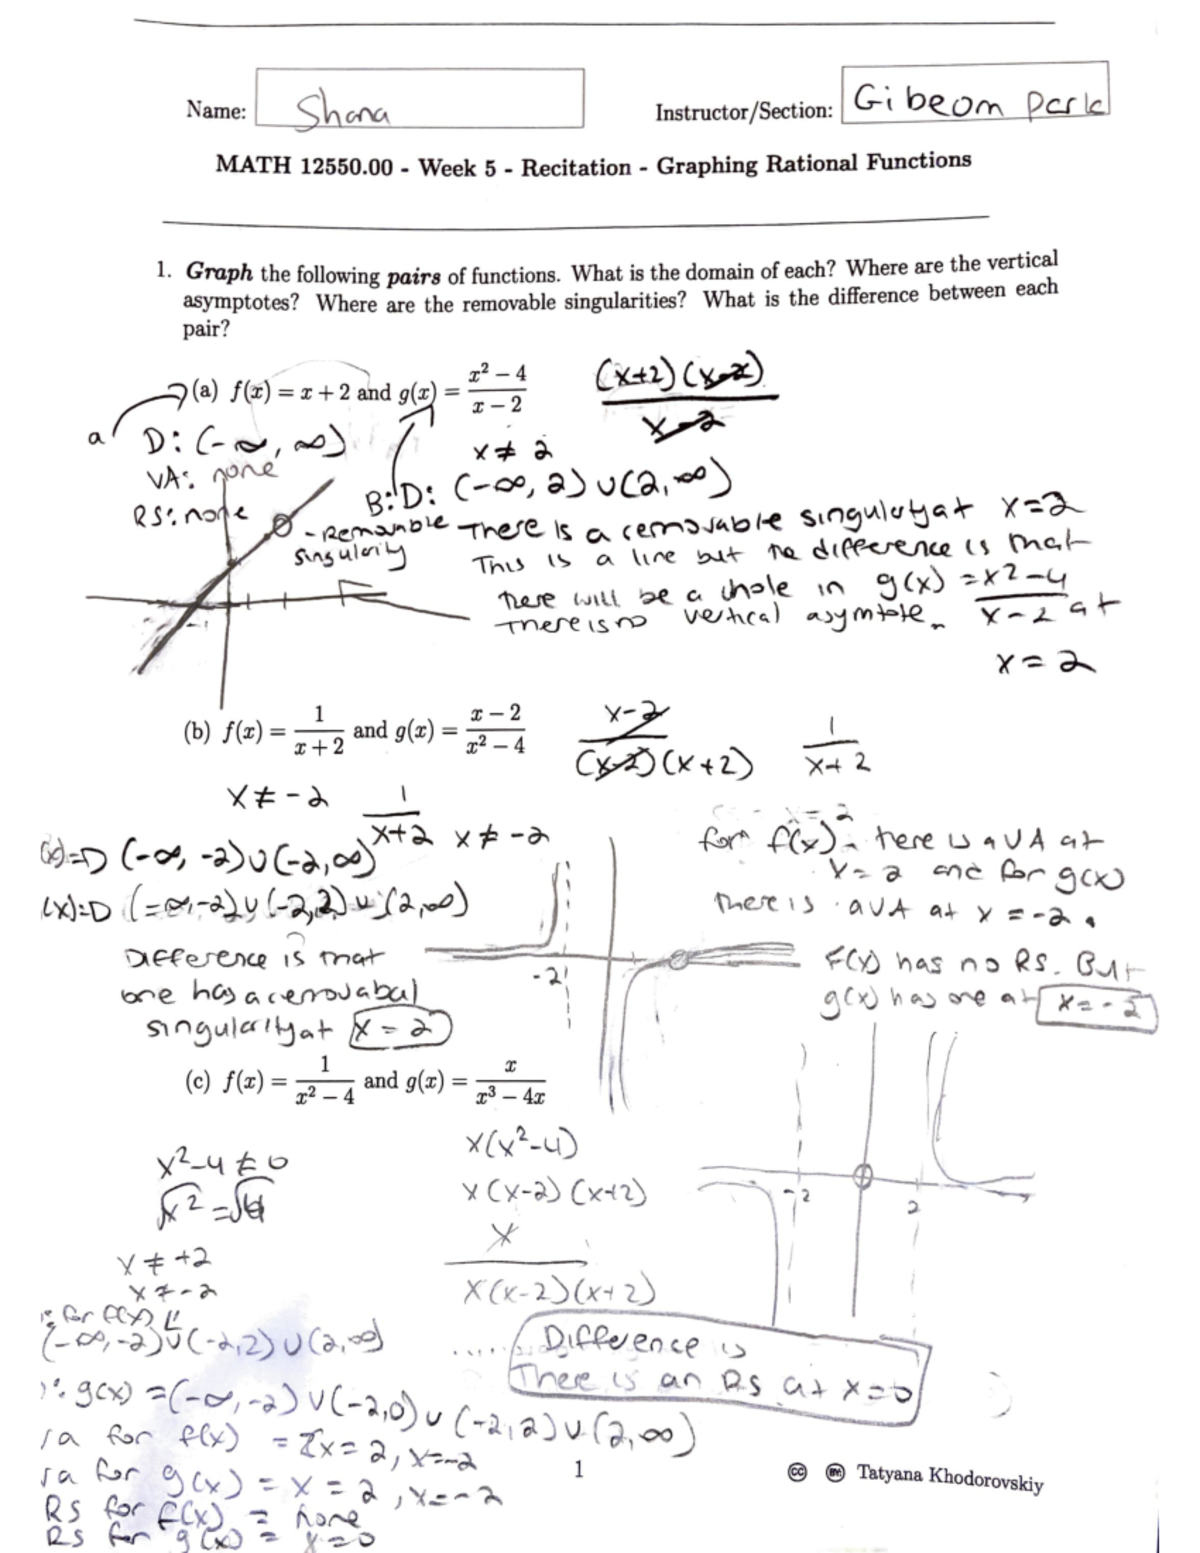 Name: Shana
Instructor/Section: Gibeom Park
MATH 12550.00 - Week 5 - Recitation - Graphing Rational Functions
1. Graph the following pairs of functions. What is the domain of each? Where are the vertical
asymptotes? Where are the removable singularities? What is the difference between each
pair?
(a) f(x) = x + 2 and g(x) = (x² − 4)/(x − 2)
(x+2)(x-2)
x-2
a
D: (-∞, ∞)
x ≠ 2
VA: none
B: D: (-∞, 2) ∪ (2, ∞)
RS: none
- Removable
singularity
There is a removable singularity at x=2
This is a line but the difference is that
there will be a hole in g(x) = x²-4
x-2 at
There is no vertical asymptote.
x = 2
-1
(b) f(x) = 1/(x + 2) and g(x) = (x − 2)/(x² − 4)
x-2
(x-2)(x+2)
1
x+2
x ≠ -2
1
x+2 x ≠ -2
(x)=D (-∞, -2)∪(-2,∞)
(x)=D (-∞,-2)∪(-2,2)∪(2,∞)
Difference is that
one has a removabal
singularity at x = 2
-2
x = 2
for f(x) there is a VA at
x = 2 and for g(x)
there is a VA at x = -2.
F(x) has no RS. But
g(x) has one at x = -2
(c) f(x) = 1/(x² − 4) and g(x) = x/(x³ − 4x)
x²-4 ≠ 0
√x² = √4
x ≠ +2
x ≠ -2
x(x²-4)
x(x-2)(x+2)
x
x(x-2)(x+2)
-2
2
for f(x)
(-∞,-2)∪(-2,2)∪(2,∞)
Difference is
There is an RS at x=0
g(x) =(-∞,-2)∪(-2,0)∪(-2,2)∪(2,∞)
for f(x) = x=2, x=-2
for g(x) = x = 2, x=-2
RS for f(x) = none
RS for g(x) = x=0
1
cc BY: Tatyana Khodorovskiy